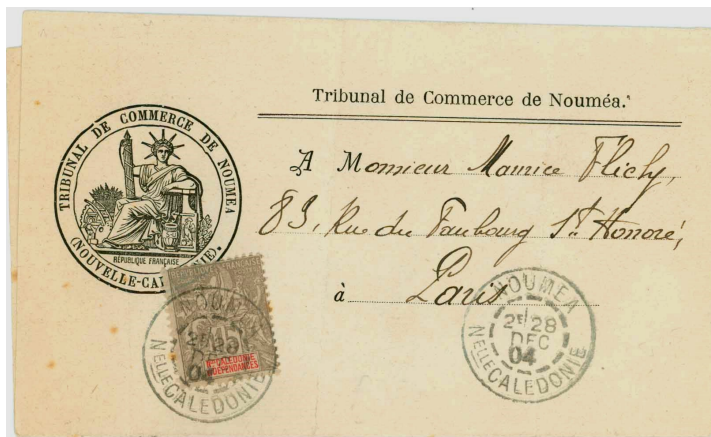 Tribunal de Commerce de Nouméa.
TRIBUNAL DE COMMERCE DE NOUMEA
(NOUVELLE-CALÉDONIE).
RÉPUBLIQUE FRANÇAISE
A Monsieur Maurice Flichy,
83, Rue du Faubourg St. Honoré,
à Paris
NOUMEA
2E 28
DEC
04
NELLE CALEDONIE
REPUBLIQUE FRANCAISE
NLLE CALEDONIE
DEPENDANCES
NOUMEA
2E 28
04
NELLE CALEDONIE